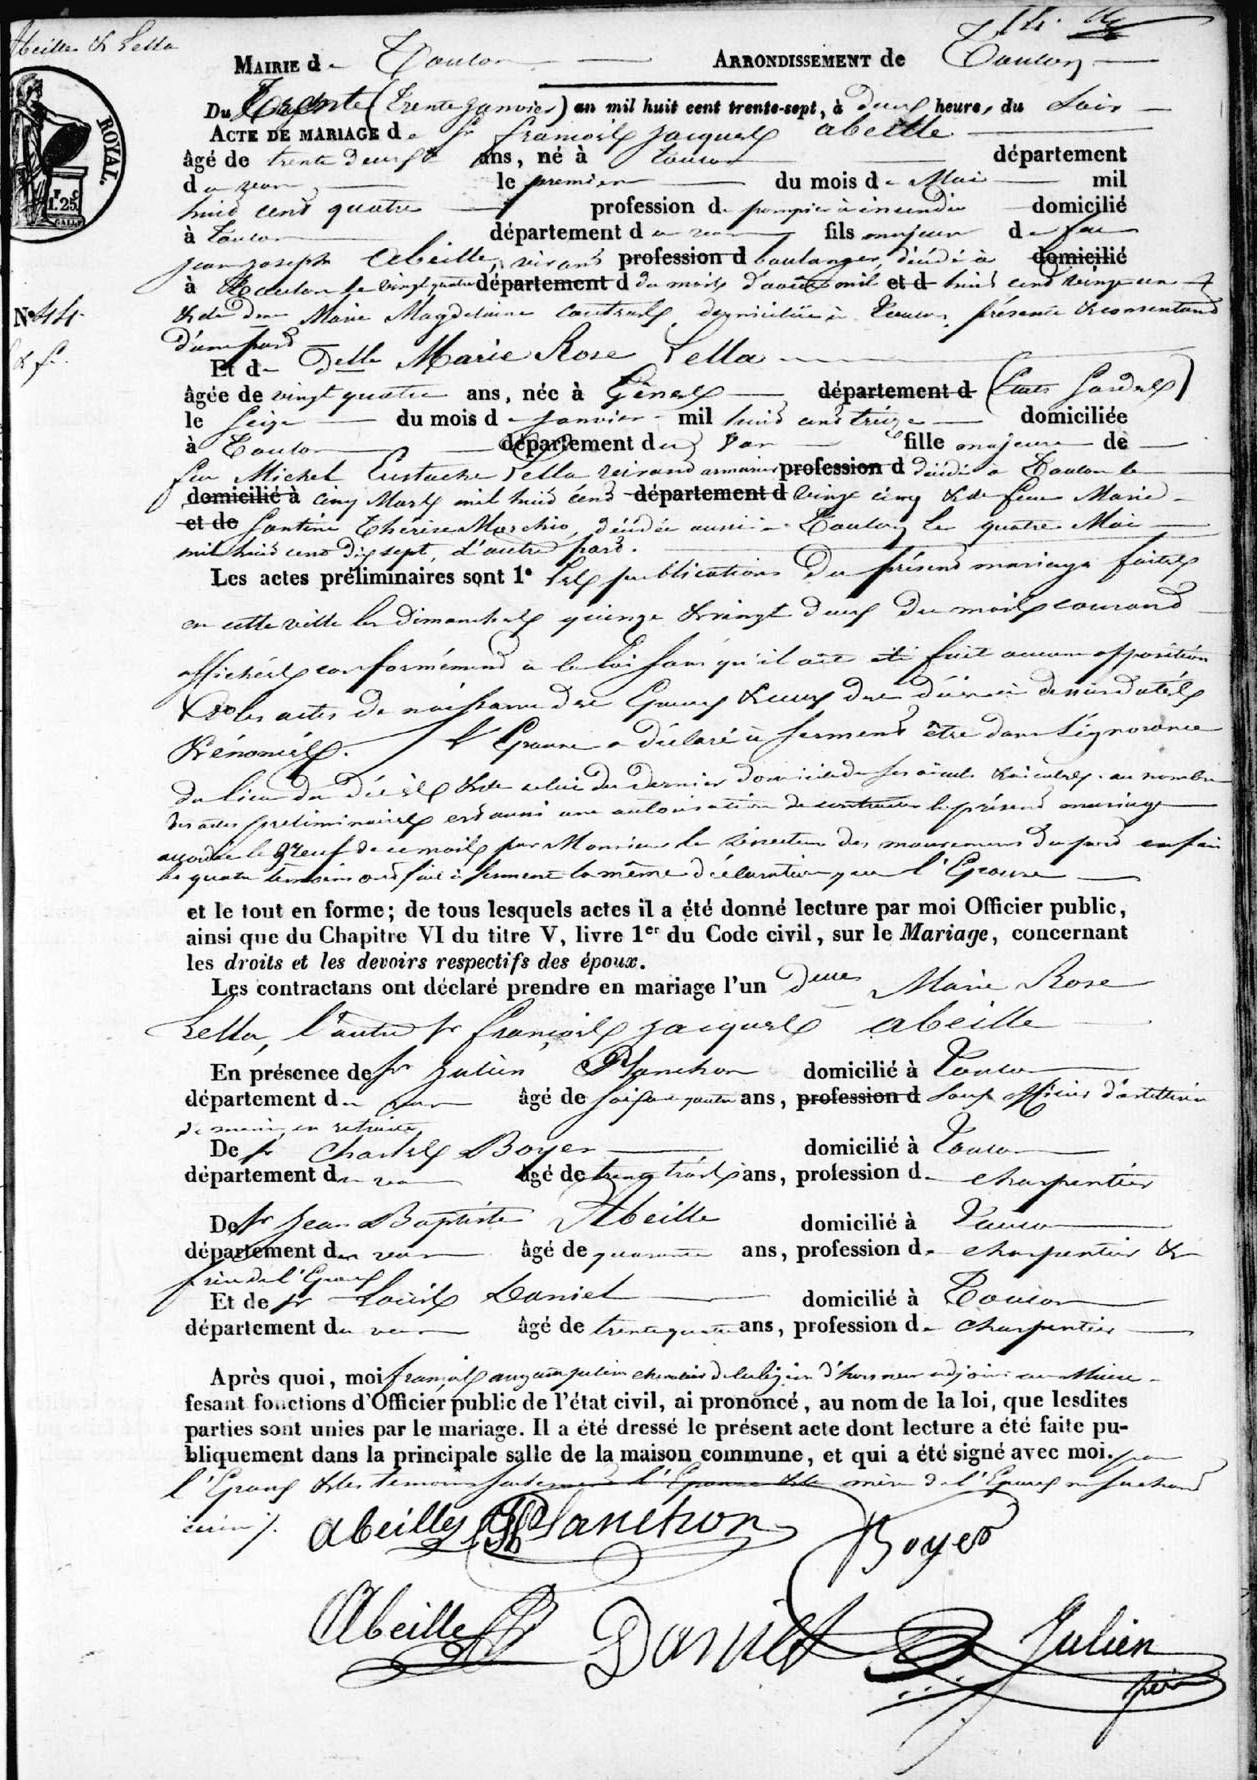 Abeille & Lella
MAIRIE de Toulon ARRONDISSEMENT de Toulon
ROYAL.
F. C
1. 25
Du Trente (trente janvier) an mil huit cent trente-sept, à deux heures, du Soir
ACTE DE MARIAGE de Sr françois jacques abeille
âgé de trente deux ans, né à toulon département
du var le premier du mois de Mai mil
huit cent quatre profession de pompier à incendie domicilié
à toulon département du var fils majeur de feu
jean joseph Abeille, vivant profession d boulanger, décédé à domicilié
à Toulon le vingt quatre département d du mois d'août mil et d huit cent vingt un
& de dme Marie Magdelaine domiciliée à Toulon, présente & consentant
d'une part
Nº 44
Et de Delle Marie Rose Lella
âgée de vingt quatre ans, née à Gênes département d (Etats Sardes)
le Seize du mois de janvier mil huit cent treize domiciliée
à Toulon département du Var fille majeure de
feu Michel Eustache Lella vivant armurier profession d décédé à Toulon le
domicilié à cinq Mars mil huit cent département d vingt cinq & de feue Marie
et de Santine Thérèse Marchio, décédée aussi à Toulon le quatre Mai
mil huit cent dix sept, d'autre part.
Les actes préliminaires sont 1º Les publications du présent mariage faites
en cette ville les dimanches quinze & vingt deux du mois courant
affichées conformément à la loi sans qu'il ait été fait aucune opposition
& 2º les actes de naissance des Epoux & ceux de décès
& énoncés. L'Epouse a déclaré à serment être dans l'ignorance
du lieu du décès & de celui du dernier domicile de ses aïeuls & aïeules. au nombre
des actes préliminaires est aussi une autorisation de contracter le présent mariage
accordée le neuf de ce mois par Monsieur le directeur des mouvemens du port enfin
les quatre témoins ont fait à serment la même déclaration que l'Epouse
et le tout en forme; de tous lesquels actes il a été donné lecture par moi Officier public,
ainsi que du Chapitre VI du titre V, livre 1er du Code civil, sur le Mariage, concernant
les droits et les devoirs respectifs des époux.
Les contractans ont déclaré prendre en mariage l'un Delle Marie Rose
Lella, l'autre Sr françois jacques abeille
En présence de Sr Julien Planchon domicilié à Toulon
département du var âgé de soixante quatre ans, profession d Sous officier d'artillerie
de marine en retraite
De Sr Charles Boyer domicilié à Toulon
département du var âgé de trente trois ans, profession de charpentier
De Sr Jean Baptiste Abeille domicilié à Toulon
département du var âgé de quarante ans, profession de charpentier &
frère de l'Epoux
Et de Sr Louis Daniel domicilié à Toulon
département du var âgé de trente quatre ans, profession de charpentier
Après quoi, moi françois julien chevalier de la légion d'honneur adjoint au Maire
fesant fonctions d'Officier public de l'état civil, ai prononcé, au nom de la loi, que lesdites
parties sont unies par le mariage. Il a été dressé le présent acte dont lecture a été faite pu-
bliquement dans la principale salle de la maison commune, et qui a été signé avec moi, par
l'Epoux & les témoins seulement l'Epouse & la mère de l'Epoux ne sachant
écrire
abeille Planchon Boyer
Abeille Daniel Julien